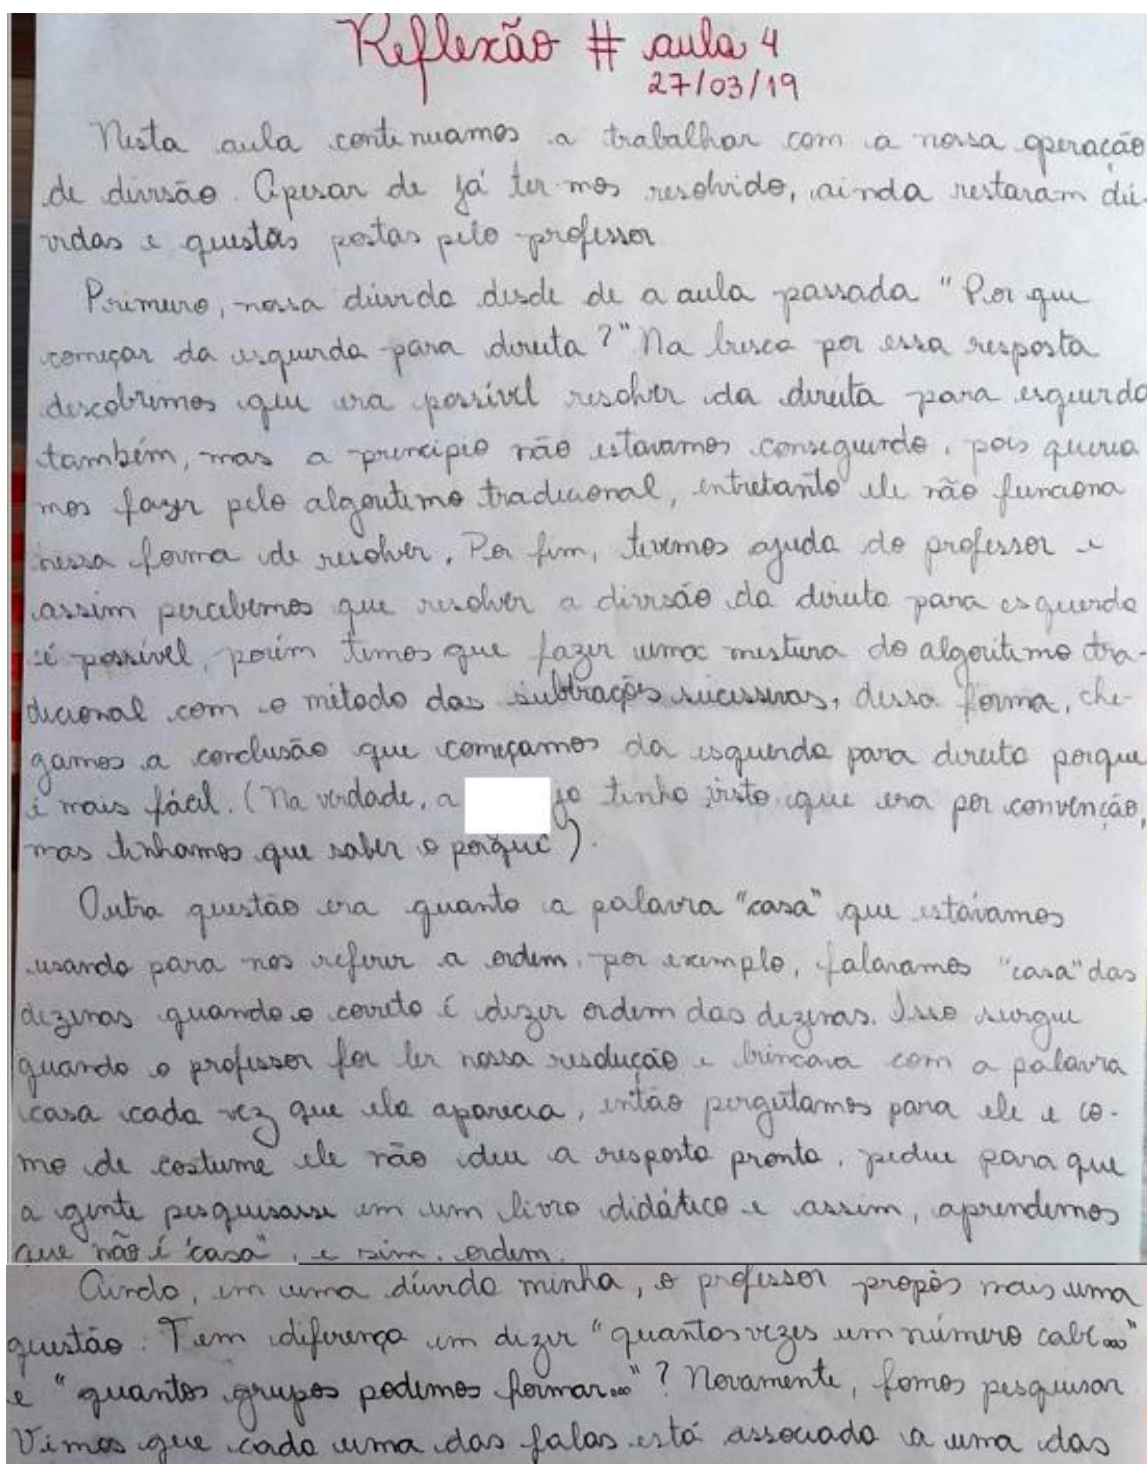 Reflexão # aula 4
27/03/19
Nesta aula continuamos a trabalhar com a nossa operação
de divisão. Apesar de já termos resolvido, ainda restaram dú-
vidas e questões postas pelo professor
Primeiro, nossa dúvida desde de a aula passada "Por que
começar da esquerda para direita?" Na busca por essa resposta
descobrimos que era possível resolver da direita para esquerda
também, mas a principio não estavamos conseguindo, pois queria
mos fazer pelo algoritimo tradicional, entretanto ele não funciona
nessa forma de resolver. Por fim, tivemos ajuda do professor e
assim percebemos que resolver a divisão da direita para esquerda
é possível, porém temos que fazer uma mistura do algoritimo tra-
dicional com o método das subtrações sucessivas, dessa forma, che-
gamos a conclusão que começamos da esquerda para direita porque
é mais fácil. (Na verdade, a ja tinha visto que era por convenção,
mas tinhamos que saber o porquê).
Outra questão era quanto a palavra "casa" que estávamos
usando para nos referir a ordem. por exemplo, falavamos "casa" das
dezenas quando o correto é dizer ordem das dezenas. Isso surgiu
quando o professor foi ler nossa resolução e brincava com a palavra
casa cada vez que ela aparecia, então pergutamos para ele e co-
mo de costume ele não deu a resposta pronta, pediu para que
a gente pesquisasse em um livro didático e assim, aprendemos
que não é "casa", e sim, ordem.
Ainda, em uma dúvida minha, o professor propôs mais uma
questão: Tem diferença em dizer "quantas vezes um número cabe..."
e "quantos grupos podemos formar..."? Novamente, fomos pesquisar
Vimos que cada uma das falas está associada a uma das